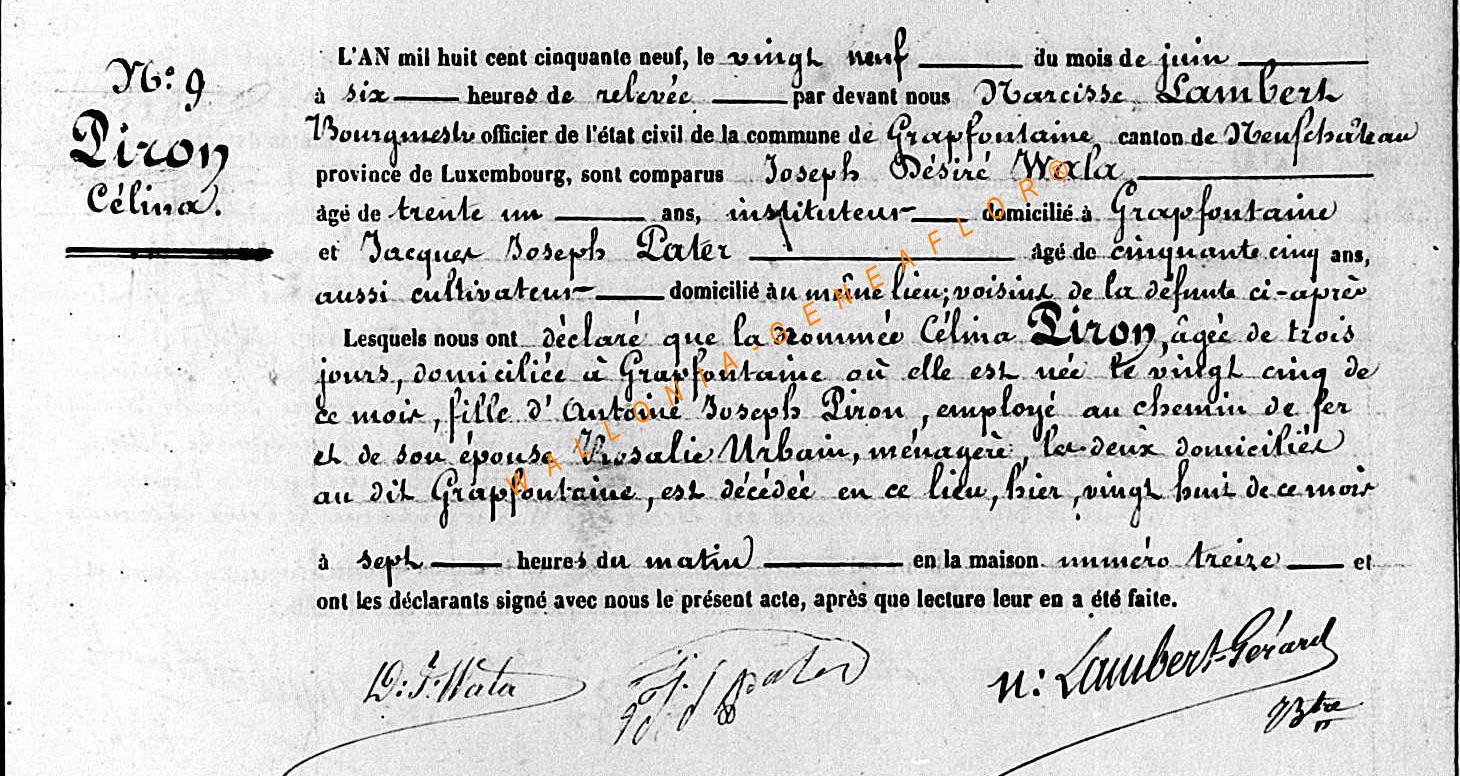 N.º 9
Piron
Célina.
L'AN mil huit cent cinquante neuf, le vingt neuf du mois de juin
à six heures de relevée par devant nous Narcisse Lambert
Bourgmestre officier de l'état civil de la commune de Grapfontaine canton de Neufchâteau
province de Luxembourg, sont comparus Joseph Désiré Wala
âgé de trente un ans, instituteur domicilié à Grapfontaine
et Jacques Joseph Pater âgé de cinquante cinq ans,
aussi cultivateur domicilié au même lieu; voisins de la défunte ci-après
Lesquels nous ont déclaré que la nommée Célina Piron, âgée de trois
jours, domiciliée à Grapfontaine où elle est née le vingt cinq de
ce mois, fille d'Antoine Joseph Piron, employé au chemin de fer
et de son épouse Rosalie Urbain, ménagère, les deux domiciliés
au dit Grapfontaine, est décédée en ce lieu, hier, vingt huit de ce mois
à sept heures du matin en la maison numéro treize et
ont les déclarants signé avec nous le présent acte, après que lecture leur en a été faite.
D: J: Wala
Pater
N: Lambert-Gérard
Btre
WALLONIA-GENEAFLOR©